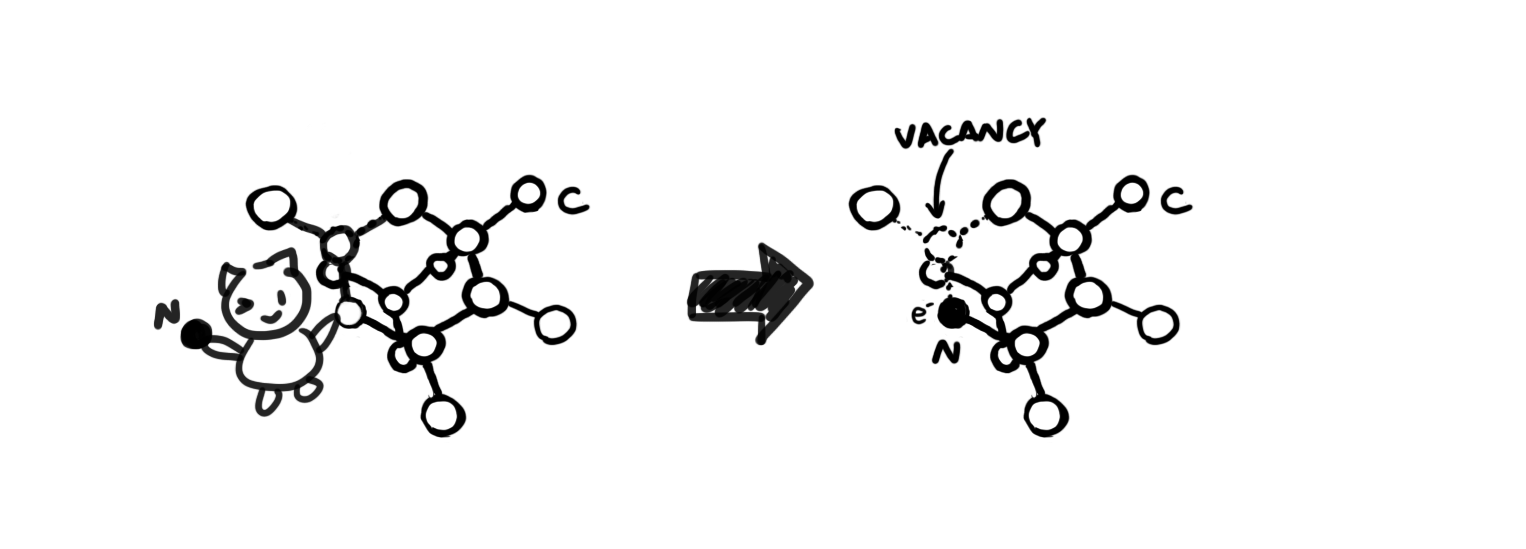 N
C
VACANCY
C
e⁻
N